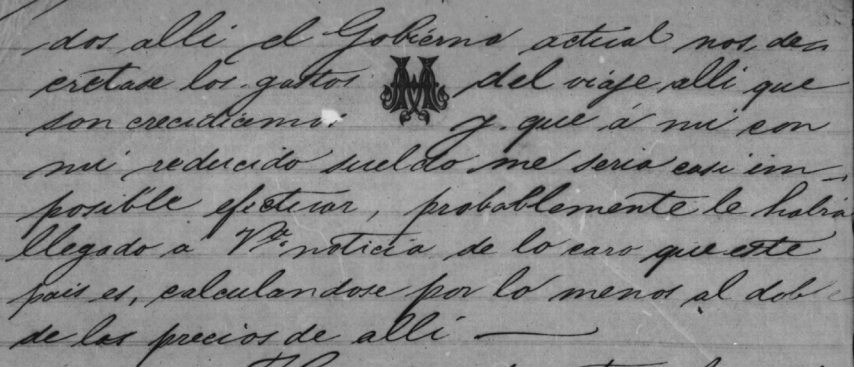 dos alli el Gobierno actual nos de
cretase los gastos del viaje alli que
son crecidicimos y que á mi con
mi reducido sueldo me seria casi im-
posible efectuar, probablemente le habra
llegado a Vd. noticia de lo caro que este
pais es, calculandose por lo menos al doble
de los precios de alli —